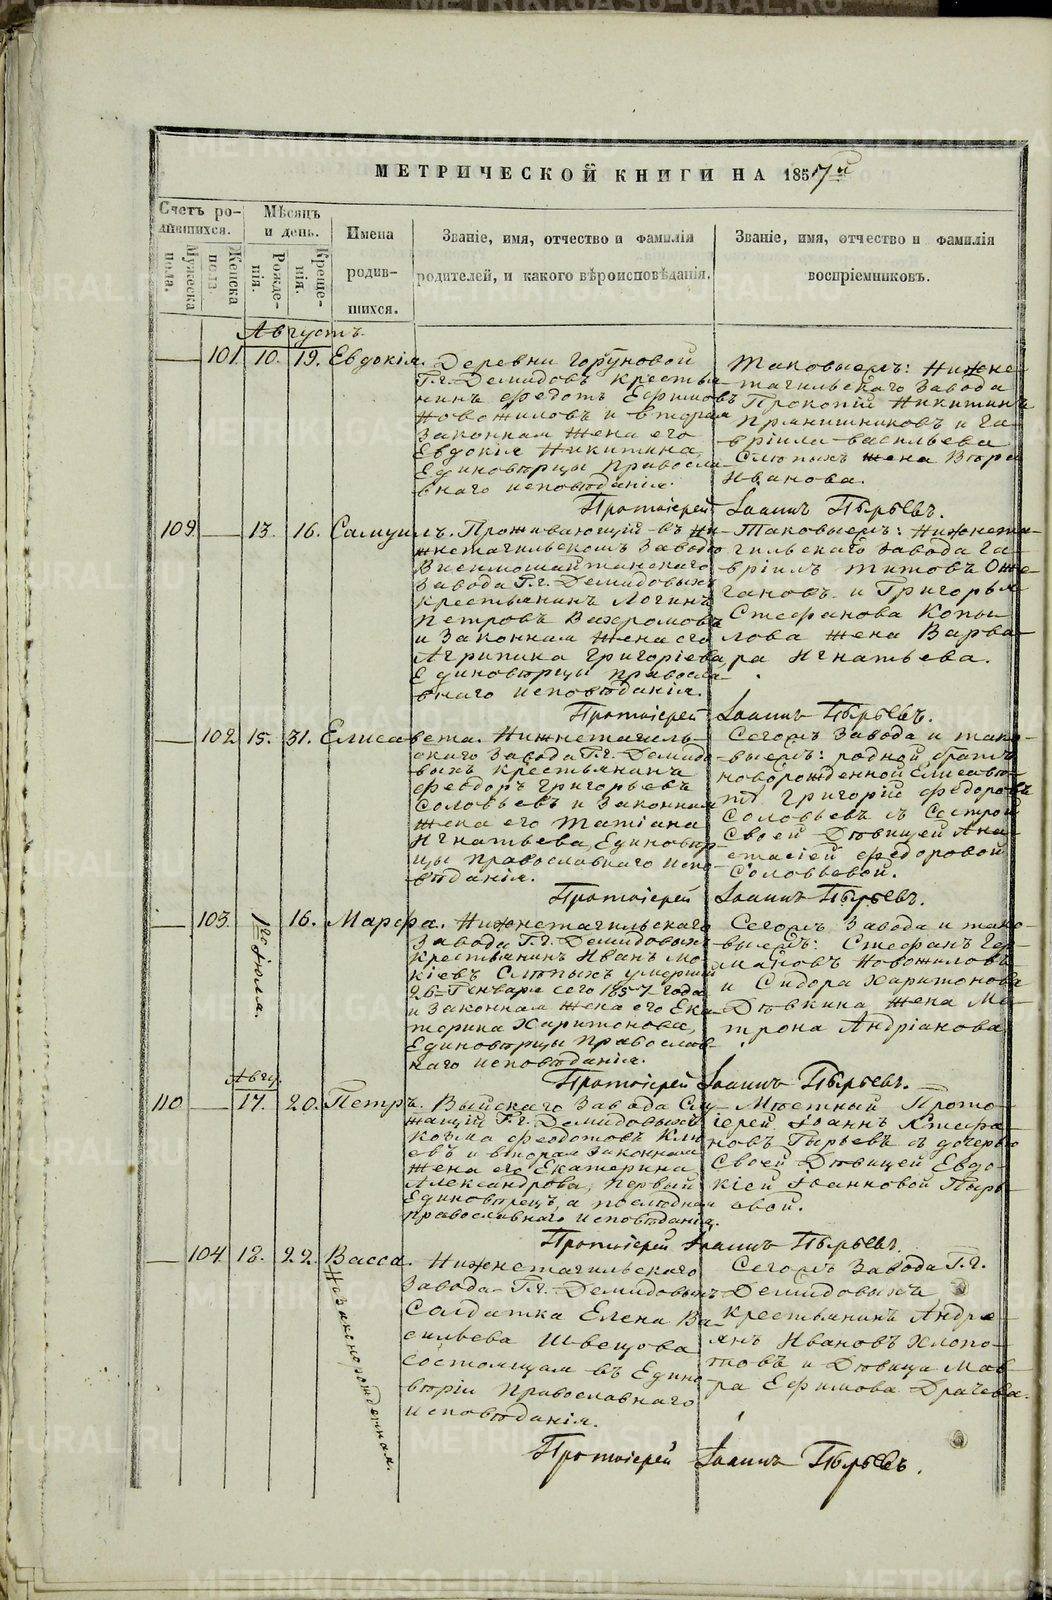 МЕТРИЧЕСКОЙ КНИГИ НА 1857й
Счетъ ро-
дившихся.
Мужеска пола.
Женска пола.
Мѣсяцъ
и день.
Рожде-
нія.
Креще-
нія.
Имена
родив-
шихся.
Званіе, имя, отчество и фамилія
родителей, и какого вѣроисповѣданія.
Званіе, имя, отчество и фамилія
воспріемниковъ.
Августъ.
101. 10. 19. Евдокія.
Деревни Горуновой
Г.г. Демидовъ крестья-
нинъ Федотъ Ефимовъ
Новожиловъ и вторая
законная жена его
Евдокія Никитина,
Единовѣрцы Правосла-
внаго исповѣданія.
Таковыежъ: Нижне-
тагильскаго Завода
Прокопій Никитинъ
Прянишниковъ и Га-
вріила Васильева
Слѣпыхъ жена Вѣра
Иванова.
Протоіерей Іоаннъ Пырьевъ.
109. 13. 16. Самуилъ.
Проживающій въ Ни-
жнетагильскомъ Заводѣ
Висимошайтанскаго
Завода Г.г. Демидовыхъ
крестьянинъ Логинъ
Петровъ Вахромовъ
и Законная жена его
Агрипина Григоріева,
Единовѣрцы правосла-
внаго исповѣданія.
Таковыежъ: Нижнета-
гильскаго завода Га-
вріилъ Титовъ Оже-
гановъ и Григорья
Стефанова Копы-
лова жена Варва-
ра Игнатьева.
Протоіерей Іоаннъ Пырьевъ.
102. 15. 31. Елисавета.
Нижнетагиль-
скаго Завода Г.г. Демидо-
выхъ крестьянинъ
Феодоръ Григорьевъ
Соловьевъ и Законная
жена его Татіана
Игнатьева, Единовѣр-
цы православнаго испо-
вѣданія.
Сегожъ Завода и тако-
выежъ: родной братъ
новорожденной Елисаве-
ты Григорій Федоровъ
Соловьевъ съ Сестрой
своей Дѣвицей Ана-
стасіей Федоровой
Соловьевой.
Протоіерей Іоаннъ Пырьевъ.
103. 1го Іюля. 16. Марфа.
Нижнетагильскаго
Завода Г.г. Демидовыхъ
крестьянинъ Иванъ Мо-
кіевъ Слѣпыхъ умершій
26 Генваря сего 1857 года
и Законная жена его Ека-
терина Харитонова,
Единовѣрцы Православ-
наго исповѣданія.
Сегожъ Завода и тако-
выежъ: Стефанъ Гер-
мановъ Новожиловъ
и Сидора Харитонова
Дѣвкина жена Ма-
трона Андріанова
Протоіерей Іоаннъ Пырьевъ.
Авгу.
110 17. 20. Петръ.
Выйскаго Завода Слу-
жащій Г.г. Демидовыхъ
Козма Феодотовъ
и вторая законная
жена его Екатерина
Александрова, первый
Единовѣрецъ, а последняя
православнаго исповѣданія.
Мѣстный Прото-
іерей Іоаннъ Стефа-
новъ Пырьевъ съ дочерью
своей Дѣвицей Евдо-
кіей Іоанновой Пырь-
евой.
Протоіерей Іоаннъ Пырьевъ.
104 18. 22. Васса.
Незаконорожденная.
Нижнетагильскаго
Завода Г.г. Демидовыхъ
Солдатка Елена Ва-
сильева Швецова
состоящая въ Едино-
вѣріи Православнаго
исповѣданія.
Сегожъ Завода Г.г.
Демидовыхъ
крестьянинъ Андре-
янъ Ивановъ Хлопо-
товъ и Дѣвица Мав-
ра Ефимова Драчева.
Протоіерей Іоаннъ Пырьевъ.
METRIKI.GASO-URAL.RU